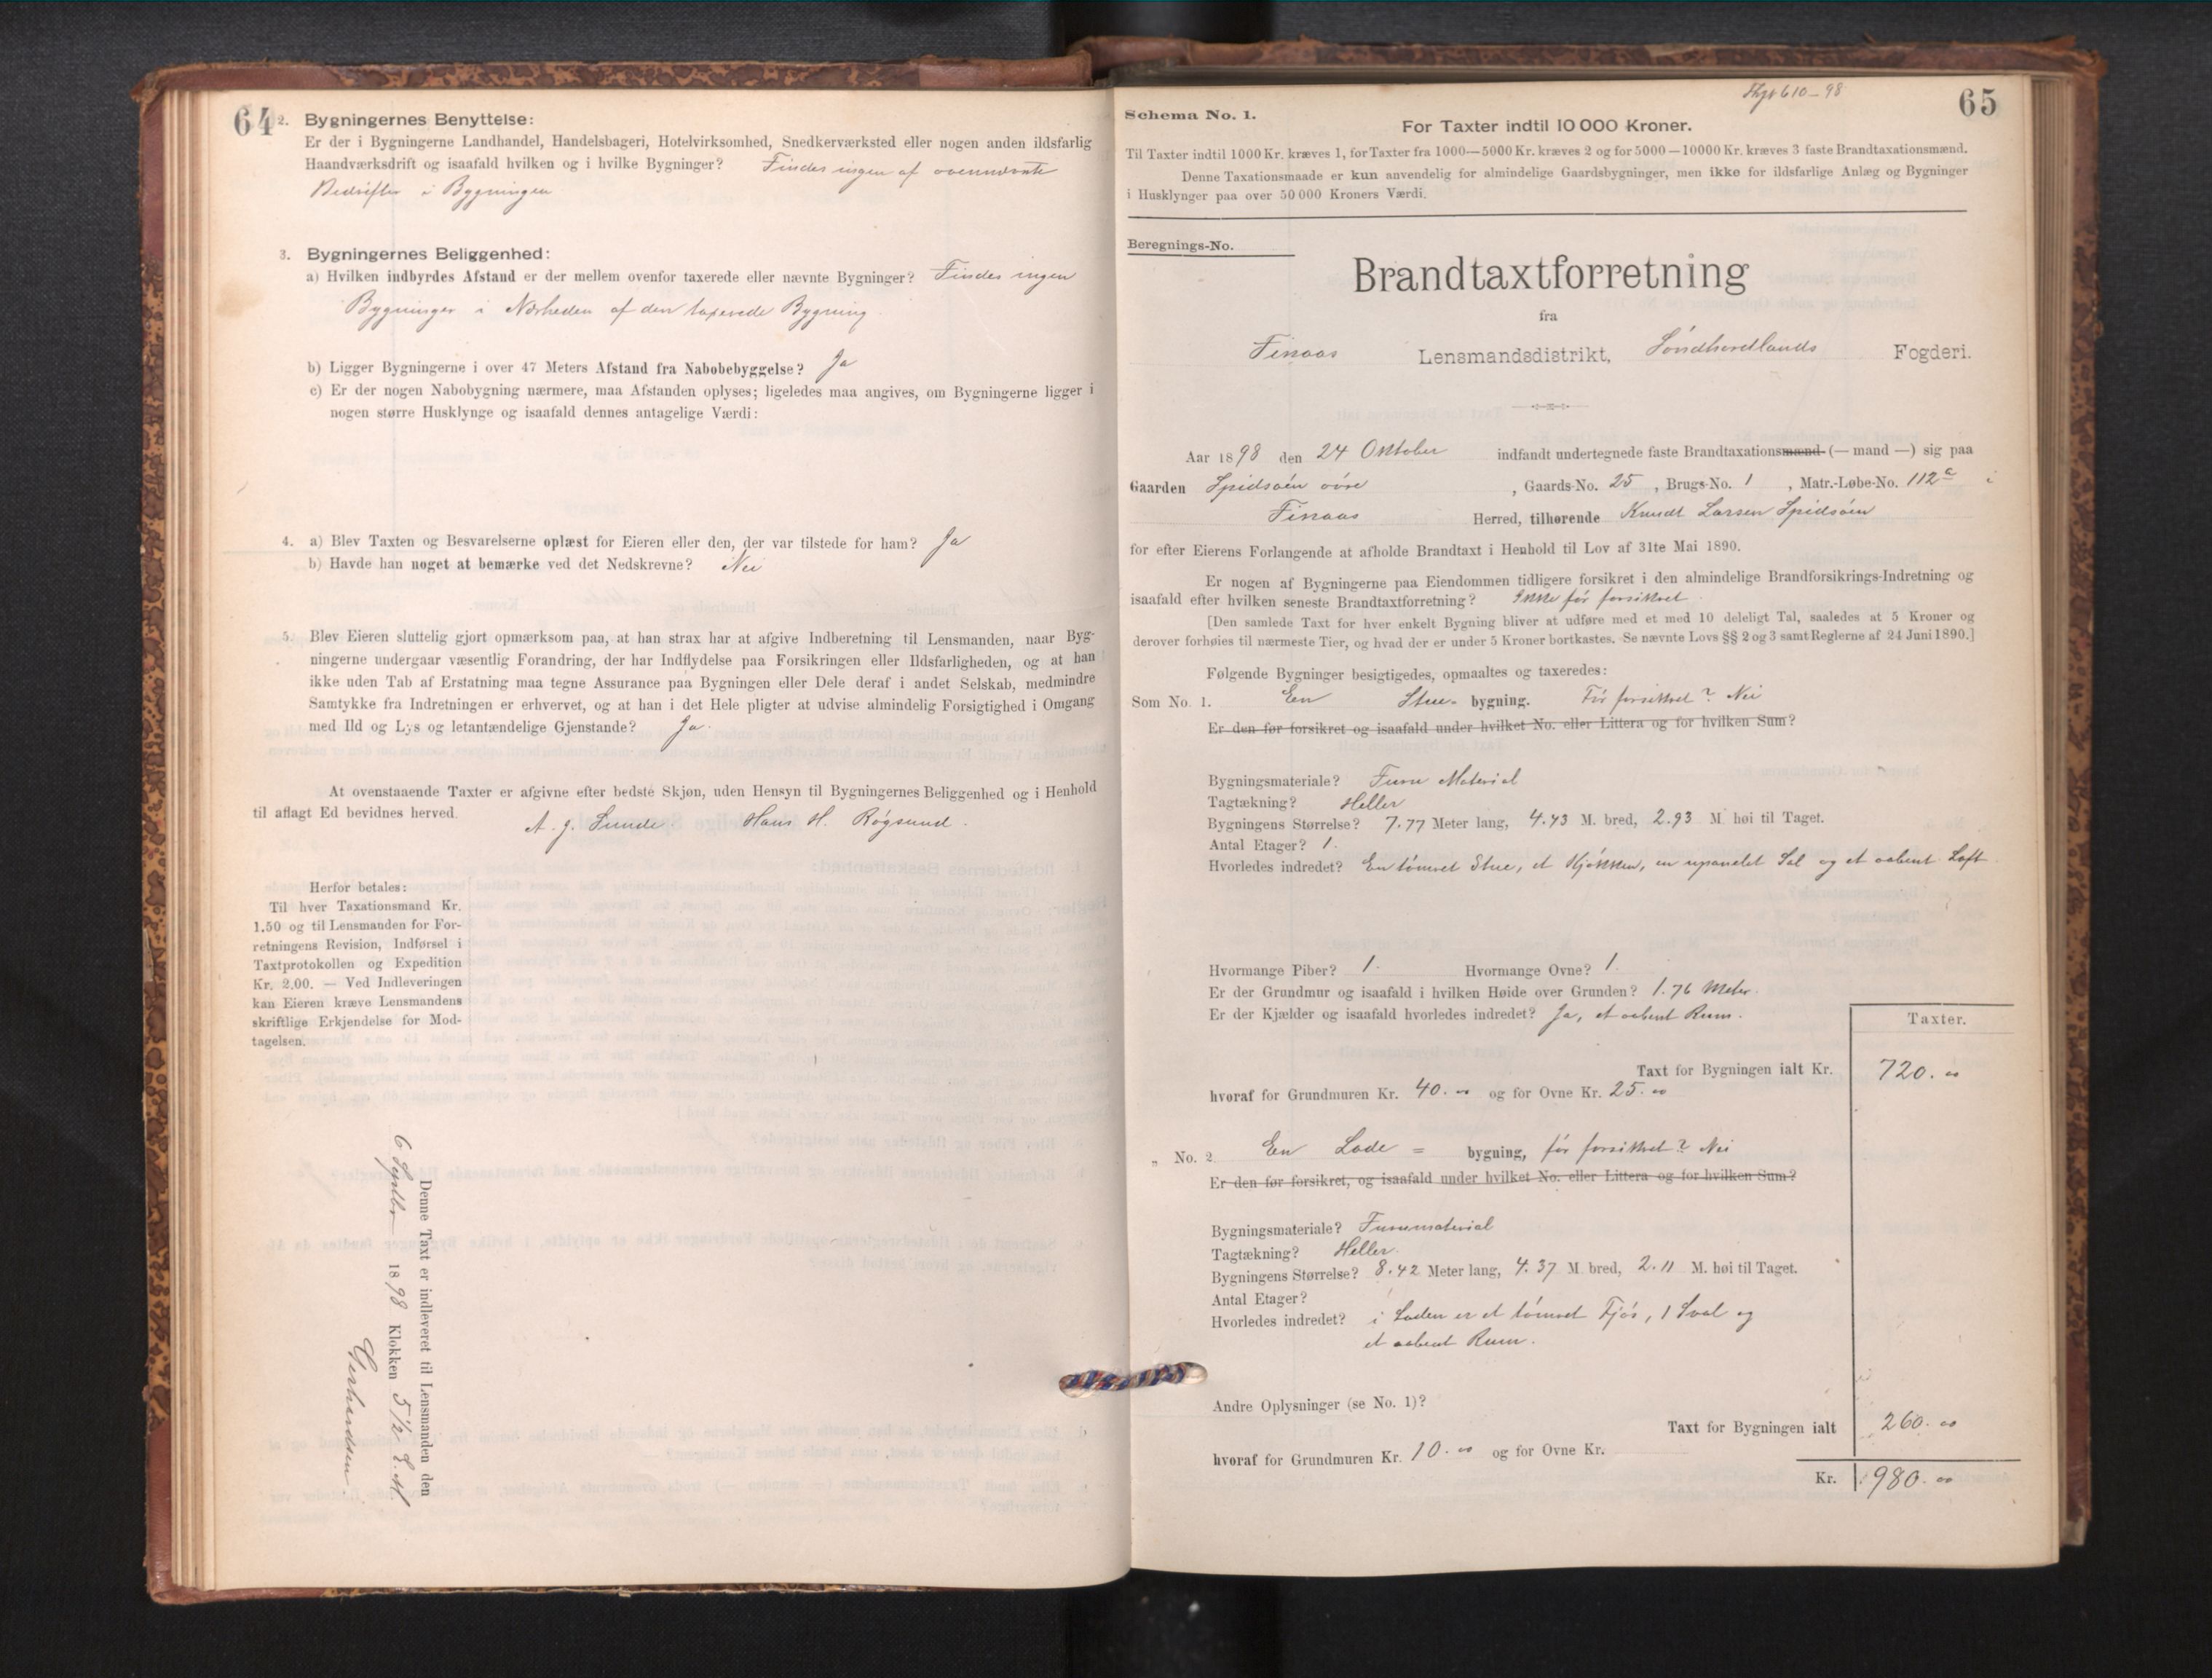 64
2. Bygningernes Benyttelse:
Er der i Bygningerne Landhandel, Handelsbageri, Hotelvirksomhed, Snedkerværksted eller nogen anden ildsfarlig
Haandværksdrift og isaafald hvilken og i hvilke Bygninger? Findes ingen af ovennævnte
Bedrifter i Bygningen
3. Bygningernes Beliggenhed:
a) Hvilken indbyrdes Afstand er der mellem ovenfor taxerede eller nævnte Bygninger? Findes ingen
Bygninger i Nærheden af den taxerede Bygning
b) Ligger Bygningerne i over 47 Meters Afstand fra Nabobebyggelse? Ja
c) Er der nogen Nabobygning nærmere, maa Afstanden oplyses; ligeledes maa angives, om Bygningerne ligger i
nogen større Husklynge og isaafald dennes antagelige Værdi:
4. a) Blev Taxten og Besvarelserne oplæst for Eieren eller den, der var tilstede for ham? Ja
b) Havde han noget at bemærke ved det Nedskrevne? Nei
5. Blev Eieren sluttelig gjort opmærksom paa, at han strax har at afgive Indberetning til Lensmanden, naar Byg-
ningerne undergaar væsentlig Forandring, der har Indflydelse paa Forsikringen eller Ildsfarligheden, og at han
ikke uden Tab af Erstatning maa tegne Assurance paa Bygningen eller Dele deraf i andet Selskab, medmindre
Samtykke fra Indretningen er erhvervet, og at han i det Hele pligter at udvise almindelig Forsigtighed i Omgang
med Ild og Lys og letantændelige Gjenstande? Ja.
At ovenstaaende Taxter er afgivne efter bedste Skjøn, uden Hensyn til Bygningernes Beliggenhed og i Henhold
til aflagt Ed bevidnes herved.
A. J. Sunde. Hans H. Røgsund.
Herfor betales:
Til hver Taxationsmand Kr.
1.50 og til Lensmanden for For-
retningens Revision, Indførsel i
Taxtprotokollen og Expedition
Kr. 2.00. — Ved Indleveringen
kan Eieren kræve Lensmandens
skriftlige Erkjendelse for Mod-
tagelsen.
Denne Taxt er indleveret til Lensmanden den
6 1898 Klokken 5 1/2 E.M.
65
Schema No. 1.
For Taxter indtil 10 000 Kroner.
Til Taxter indtil 1000 Kr. kræves 1, for Taxter fra 1000—5000 Kr. kræves 2 og for 5000—10000 Kr. kræves 3 faste Brandtaxationsmænd.
Denne Taxationsmaade er kun anvendelig for almindelige Gaardsbygninger, men ikke for ildsfarlige Anlæg og Bygninger
i Husklynger paa over 50 000 Kroners Værdi.
Beregnings-No.
Brandtaxtforretning
fra
Finaas Lensmandsdistrikt, Søndhordlands Fogderi.
Aar 1898 den 24 Oktober indfandt undertegnede faste Brandtaxationsmænd (— mand —) sig paa
Gaarden Spidsøen øvre, Gaards-No. 25, Brugs-No. 1, Matr.-Løbe-No. 112a i
Finaas Herred, tilhørende Knudt Larsen Spidsøen
for efter Eierens Forlangende at afholde Brandtaxt i Henhold til Lov af 31te Mai 1890.
Er nogen af Bygningerne paa Eiendommen tidligere forsikret i den almindelige Brandforsikrings-Indretning og
isaafald efter hvilken seneste Brandtaxtforretning? Ikke før forsikret.
[Den samlede Taxt for hver enkelt Bygning bliver at udføre med et med 10 deleligt Tal, saaledes at 5 Kroner og
derover forhøies til nærmeste Tier, og hvad der er under 5 Kroner bortkastes. Se nævnte Lovs §§ 2 og 3 samt Reglerne af 24 Juni 1890.]
Følgende Bygninger besigtigedes, opmaaltes og taxeredes:
Som No. 1. En Stue-bygning. Før forsikret? Nei
Er den før forsikret og isaafald under hvilket No. eller Littera og for hvilken Sum?
Bygningsmateriale? Furu Material
Tagtækning? Heller
Bygningens Størrelse? 7.77 Meter lang, 4.43 M. bred, 2.93 M høi til Taget.
Antal Etager? 1.
Hvorledes indredet? En tømret Stue, et Kjøkken, en upanelet Sal og et aabent Loft
Hvormange Piber? 1. Hvormange Ovne? 1.
Er der Grundmur og isaafald i hvilken Høide over Grunden? 1.76 Meter.
Er der Kjælder og isaafald hvorledes indredet? Ja, et aabent Rum.
Taxter.
Taxt for Bygningen ialt Kr. 720.00
hvoraf for Grundmuren Kr. 40.00 og for Ovne Kr. 25.00
„ No. 2 En Lade = bygning, før forsikret? Nei
Er den før forsikret, og isaafald under hvilket No. eller Littera og for hvilken Sum?
Bygningsmateriale? Furumaterial
Tagtækning? Heller.
Bygningens Størrelse? 8.42 Meter lang, 4.37 M bred, 2.11 M. høi til Taget.
Antal Etager?
Hvorledes indredet? i Laden er et tømret Fjøs, 1 Sval og
et aabent Rum.
Andre Oplysninger (se No. 1)?
Taxt for Bygningen ialt 260.00
hvoraf for Grundmuren Kr. 10.00 og for Ovne Kr.
Kr. 980.00